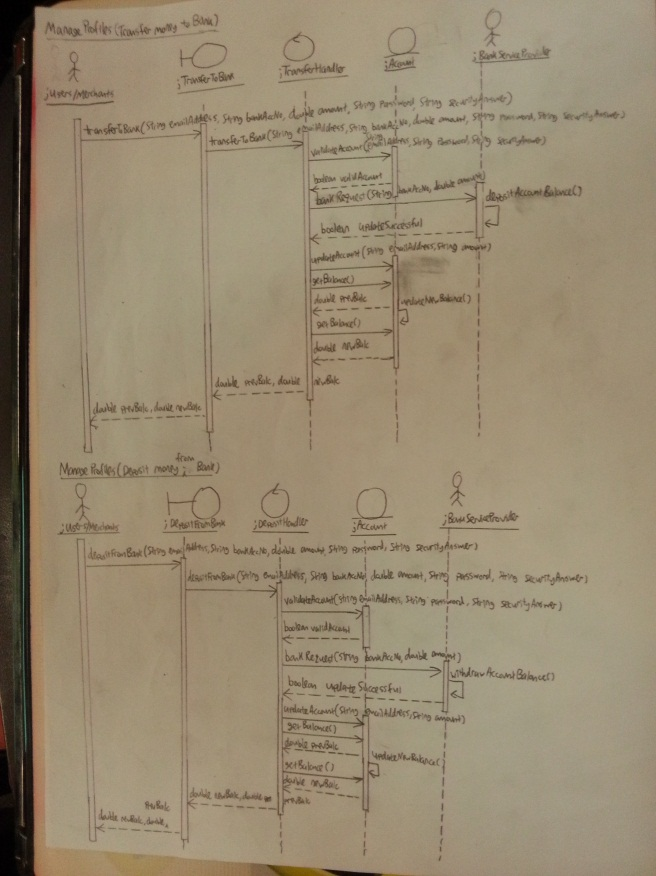 Manage Profiles (Transfer money to Bank)
:Users/Merchants
:TransferToBank
:TransferHandler
:Account
:BankServiceProvider
transferToBank(String emailAddress, String bankAccNo, double amount, String Password, String securityAnswer)
transferToBank(String emailAddress, String bankAccNo, double amount, String Password, String securityAnswer)
validateAccount(String emailAddress, String Password, String securityAnswer)
boolean validAccount
bankRequest(String bankAccNo, double amount)
depositAccountBalance()
boolean updateSuccessful
updateAccount(String emailAddress, String amount)
getBalance()
double prevBalc
updateNewBalance()
getBalance()
double newBalc
double prevBalc, double newBalc
double prevBalc, double newBalc
Manage Profiles (Deposit money from Bank)
:Users/Merchants
:DepositFromBank
:DepositHandler
:Account
:BankServiceProvider
depositFromBank(String emailAddress, String bankAccNo, double amount, String Password, String securityAnswer)
depositFromBank(String emailAddress, String bankAccNo, double amount, String Password, String securityAnswer)
validateAccount(String emailAddress, String password, String securityAnswer)
boolean validAccount
bankRequest(String bankAccNo, double amount)
withdrawAccountBalance()
boolean updateSuccessful
updateAccount(String emailAddress, String amount)
getBalance()
double prevBalc
updateNewBalance()
getBalance()
double newBalc
double newBalc, double prevBalc
double newBalc, double prevBalc